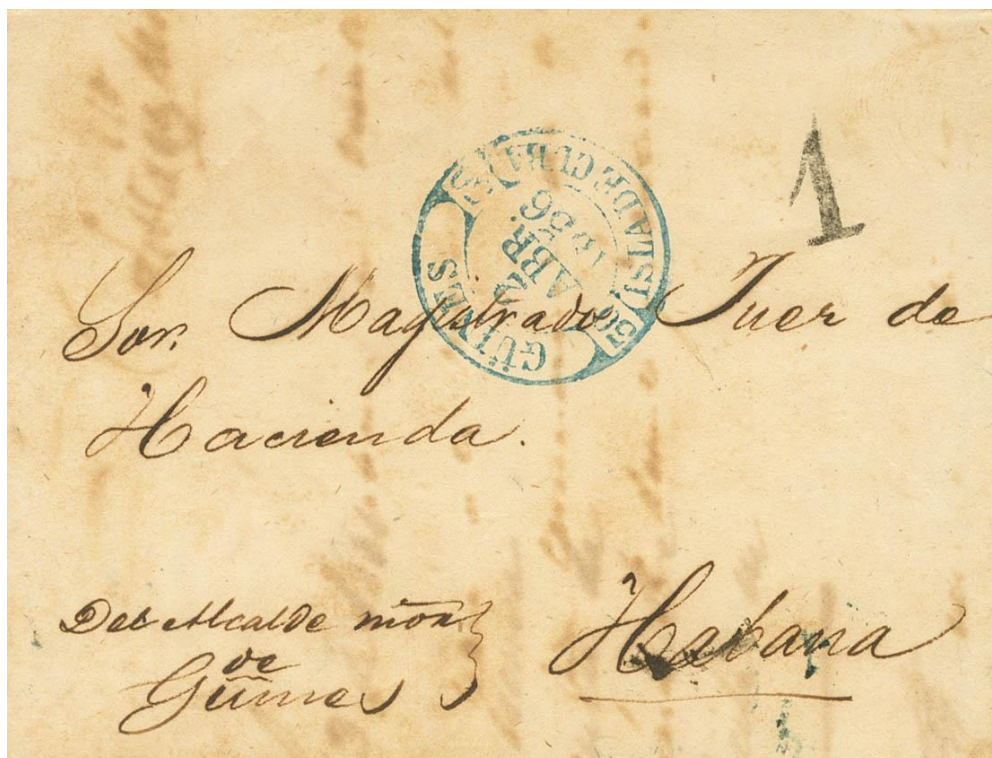 GÜINES
ISLA DE CUBA
ABR.
1856
1
Sor. Magistrado Juez de
Hacienda.
Del Alcalde
de
Güines
Habana